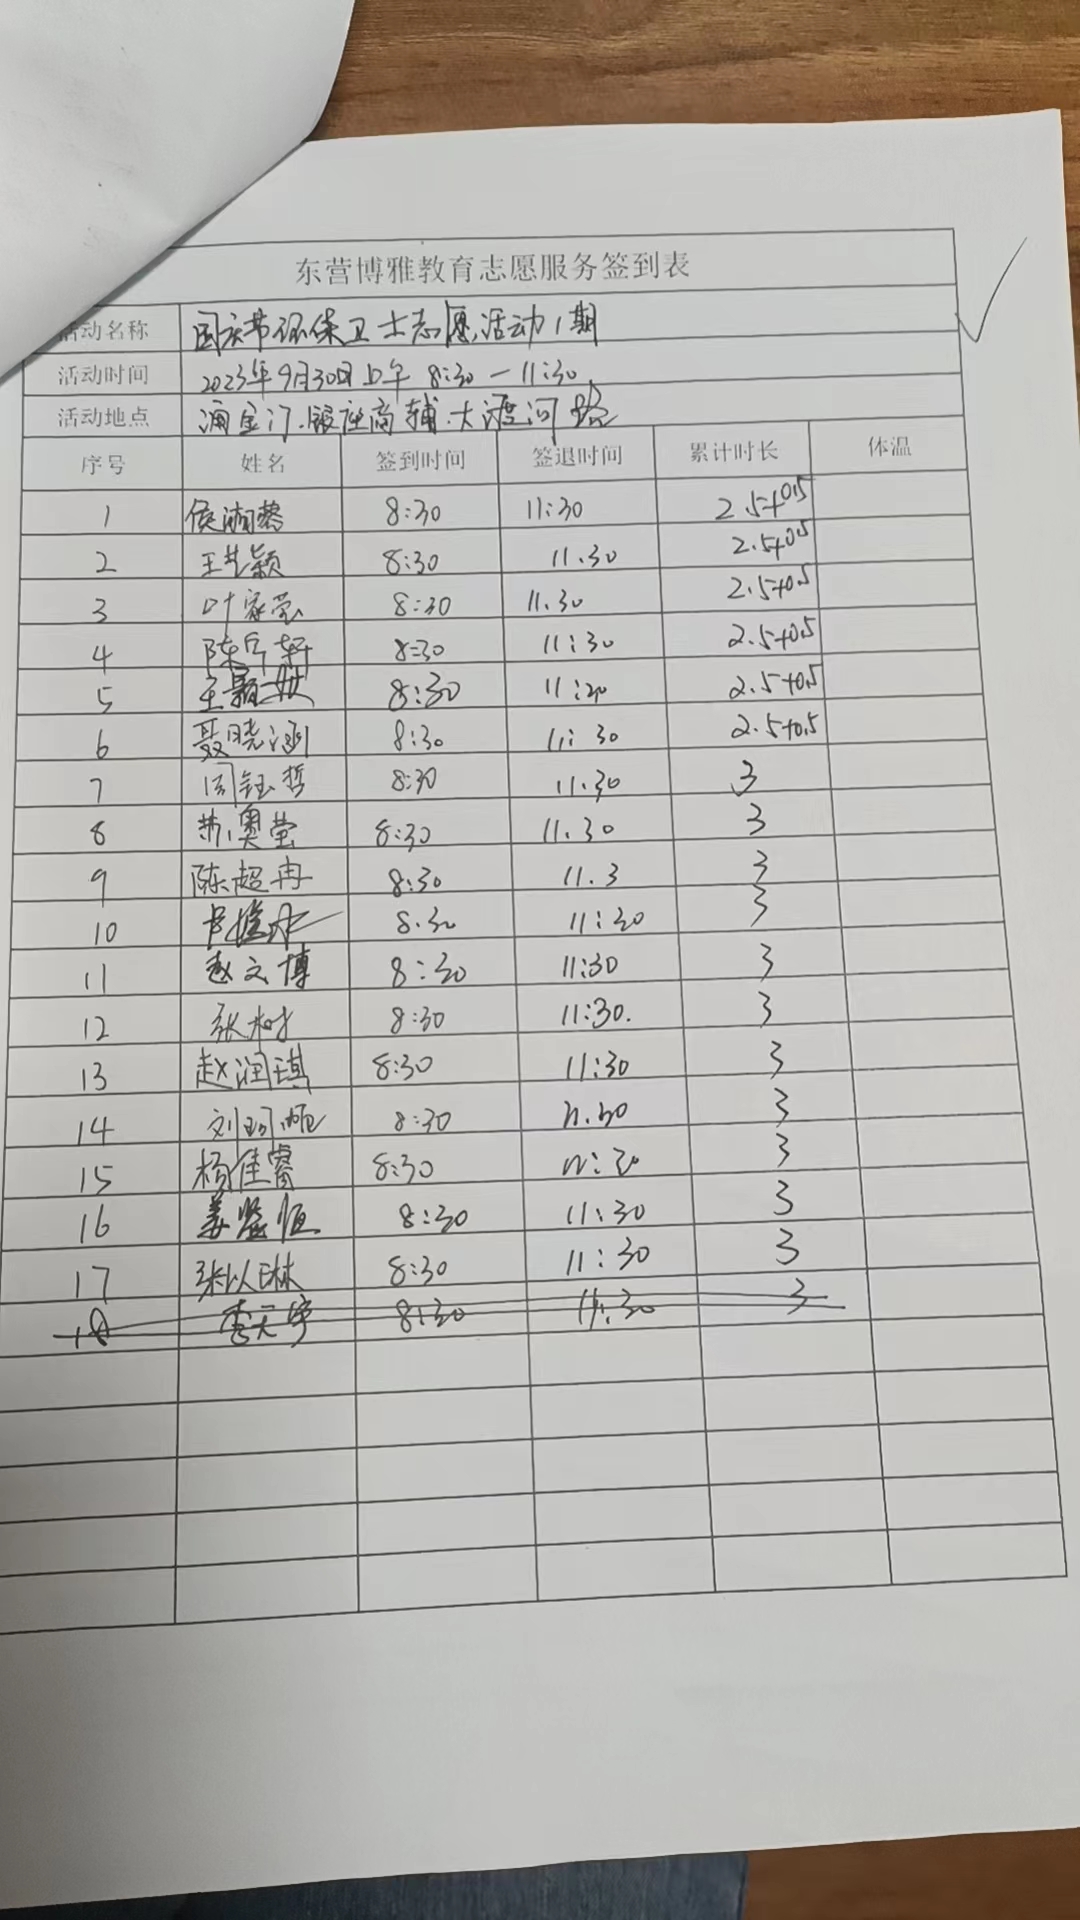 东营博雅教育志愿服务签到表
活动名称 国庆节环保卫士志愿活动1期
活动时间 2023年9月30日上午 8:30一11:30
活动地点 浦金门.银座商辅.大渡河路
序号 姓名 签到时间 签退时间 累计时长 体温
1 侯湘蓉 8:30 11:30 2.5+0.5
2 王艺颖 8:30 11.30 2.5+0.5
3 叶家莹 8:30 11.30 2.5+0.5
4 陈 轩 8:30 11:30 2.5+0.5
5 王颖 8:30 11:20 2.5+0.5
6 聂晓涵 8:30 11:30 2.5+0.5
7 周钰哲 8:30 11.30 3
8 奥莹 8:30 11.30 3
9 陈超冉 8:30 11.3 3
10 8.30 11:30 3
11 赵文博 8:30 11:30 3
12 张树 8:30 11:30. 3
13 赵润琪 8:30 11:30 3
14 刘珂 8:30 11.30 3
15 杨佳睿 8:30 11:30 3
16 姜 恒 8:30 11:30 3
17 张以琳 8:30 11:30 3
18 李天宇 8:30 11:30 3